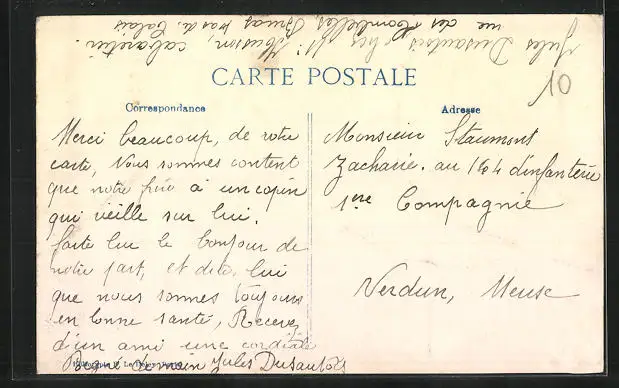 Jules Dusautois chez Mr Husson, cabaretier
rue des
Bruay Pas de Calais
CARTE POSTALE
10
Correspondance
Adresse
Merci beaucoup, de votre
carte, Nous sommes content
que notre frère a un copin
qui vieille sur lui.
faite lui le bonjour de
notre part, et dite lui
que nous sommes toujours
en bonne santé, Recevez
d'un ami une cordiale
Pogné de main Jules Dusautois
Monsieur Staumont
Zacharie. au 164 d'infanterie
1ère Compagnie
Verdun, Meuse